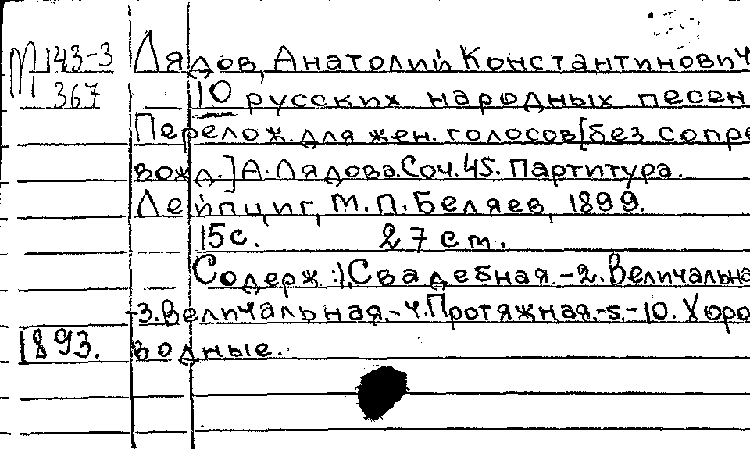 М 143-3 Лядов, Анатолий Константинович
367 10 русских народных песен
Перелож. для жен. голосов [без сопро
вожд.] А. Лядова. Соч. 45. Партитура.
Лейпциг, М. П. Беляев, 1899.
15 с. 27 cm.
Содерж.: 1. Свадебная. -2. Величальная
-3. Величальная. -4. Протяжная. -5.-10. Хоро
1893. водные.